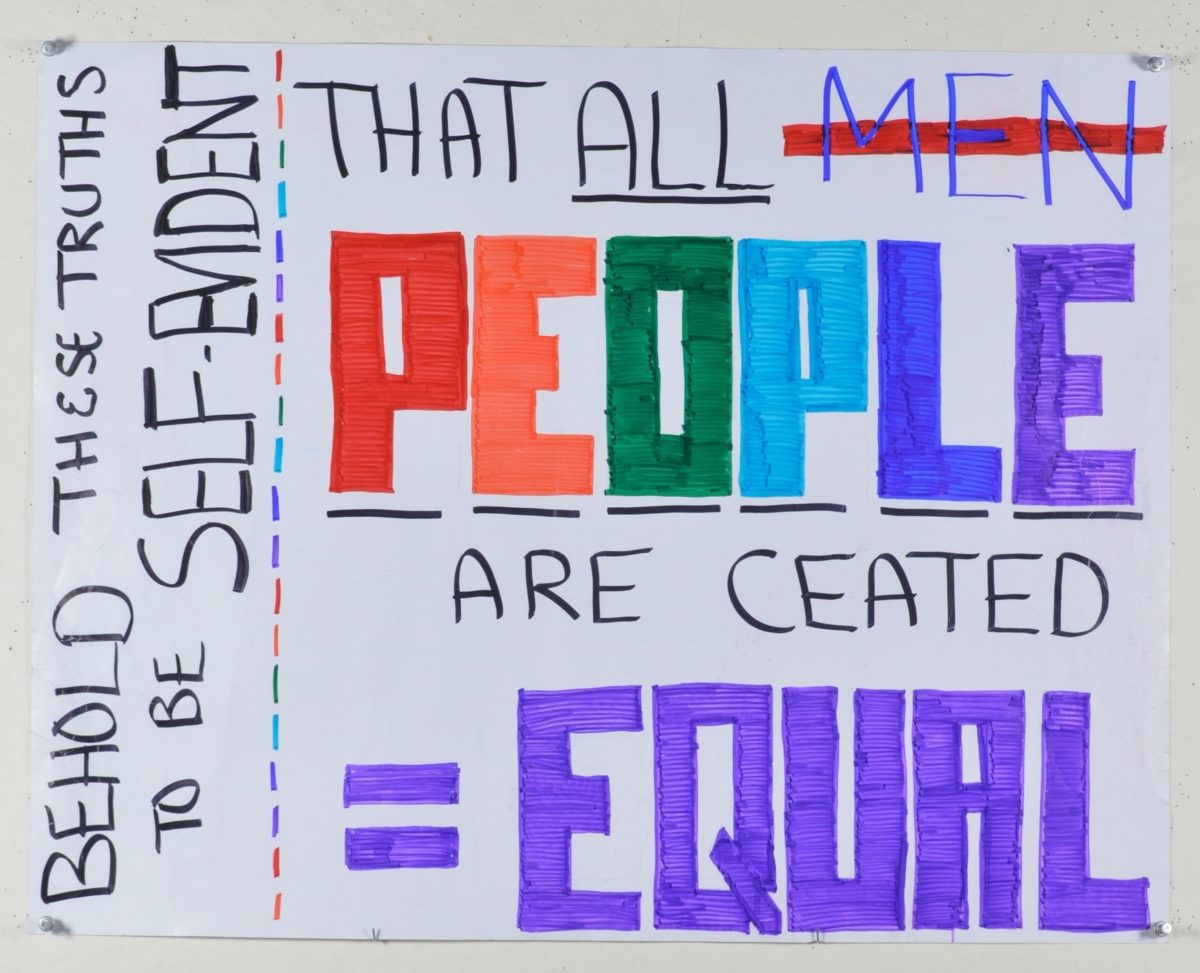 BEHOLD THESE TRUTHS
TO BE SELF-EVIDENT
THAT ALL MEN
PEOPLE
ARE CEATED
= EQUAL